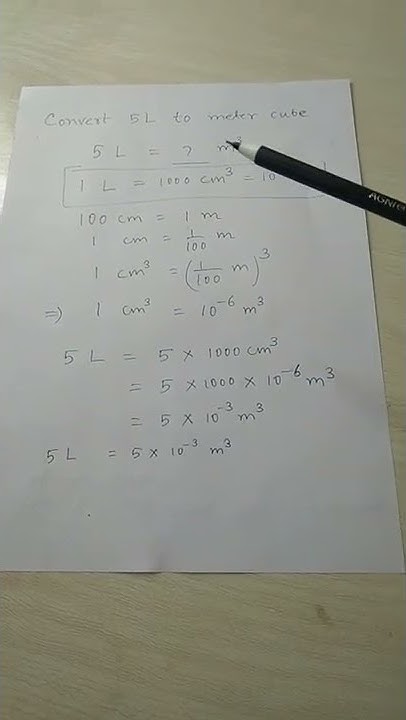 Convert 5L to meter cube
5 L = ? m³
1 L = 1000 cm³ = 10
100 cm = 1 m
1 cm = 1/100 m
1 cm³ = (1/100 m)³
=> 1 cm³ = 10⁻⁶ m³
5 L = 5 × 1000 cm³
= 5 × 1000 × 10⁻⁶ m³
= 5 × 10⁻³ m³
5 L = 5 × 10⁻³ m³